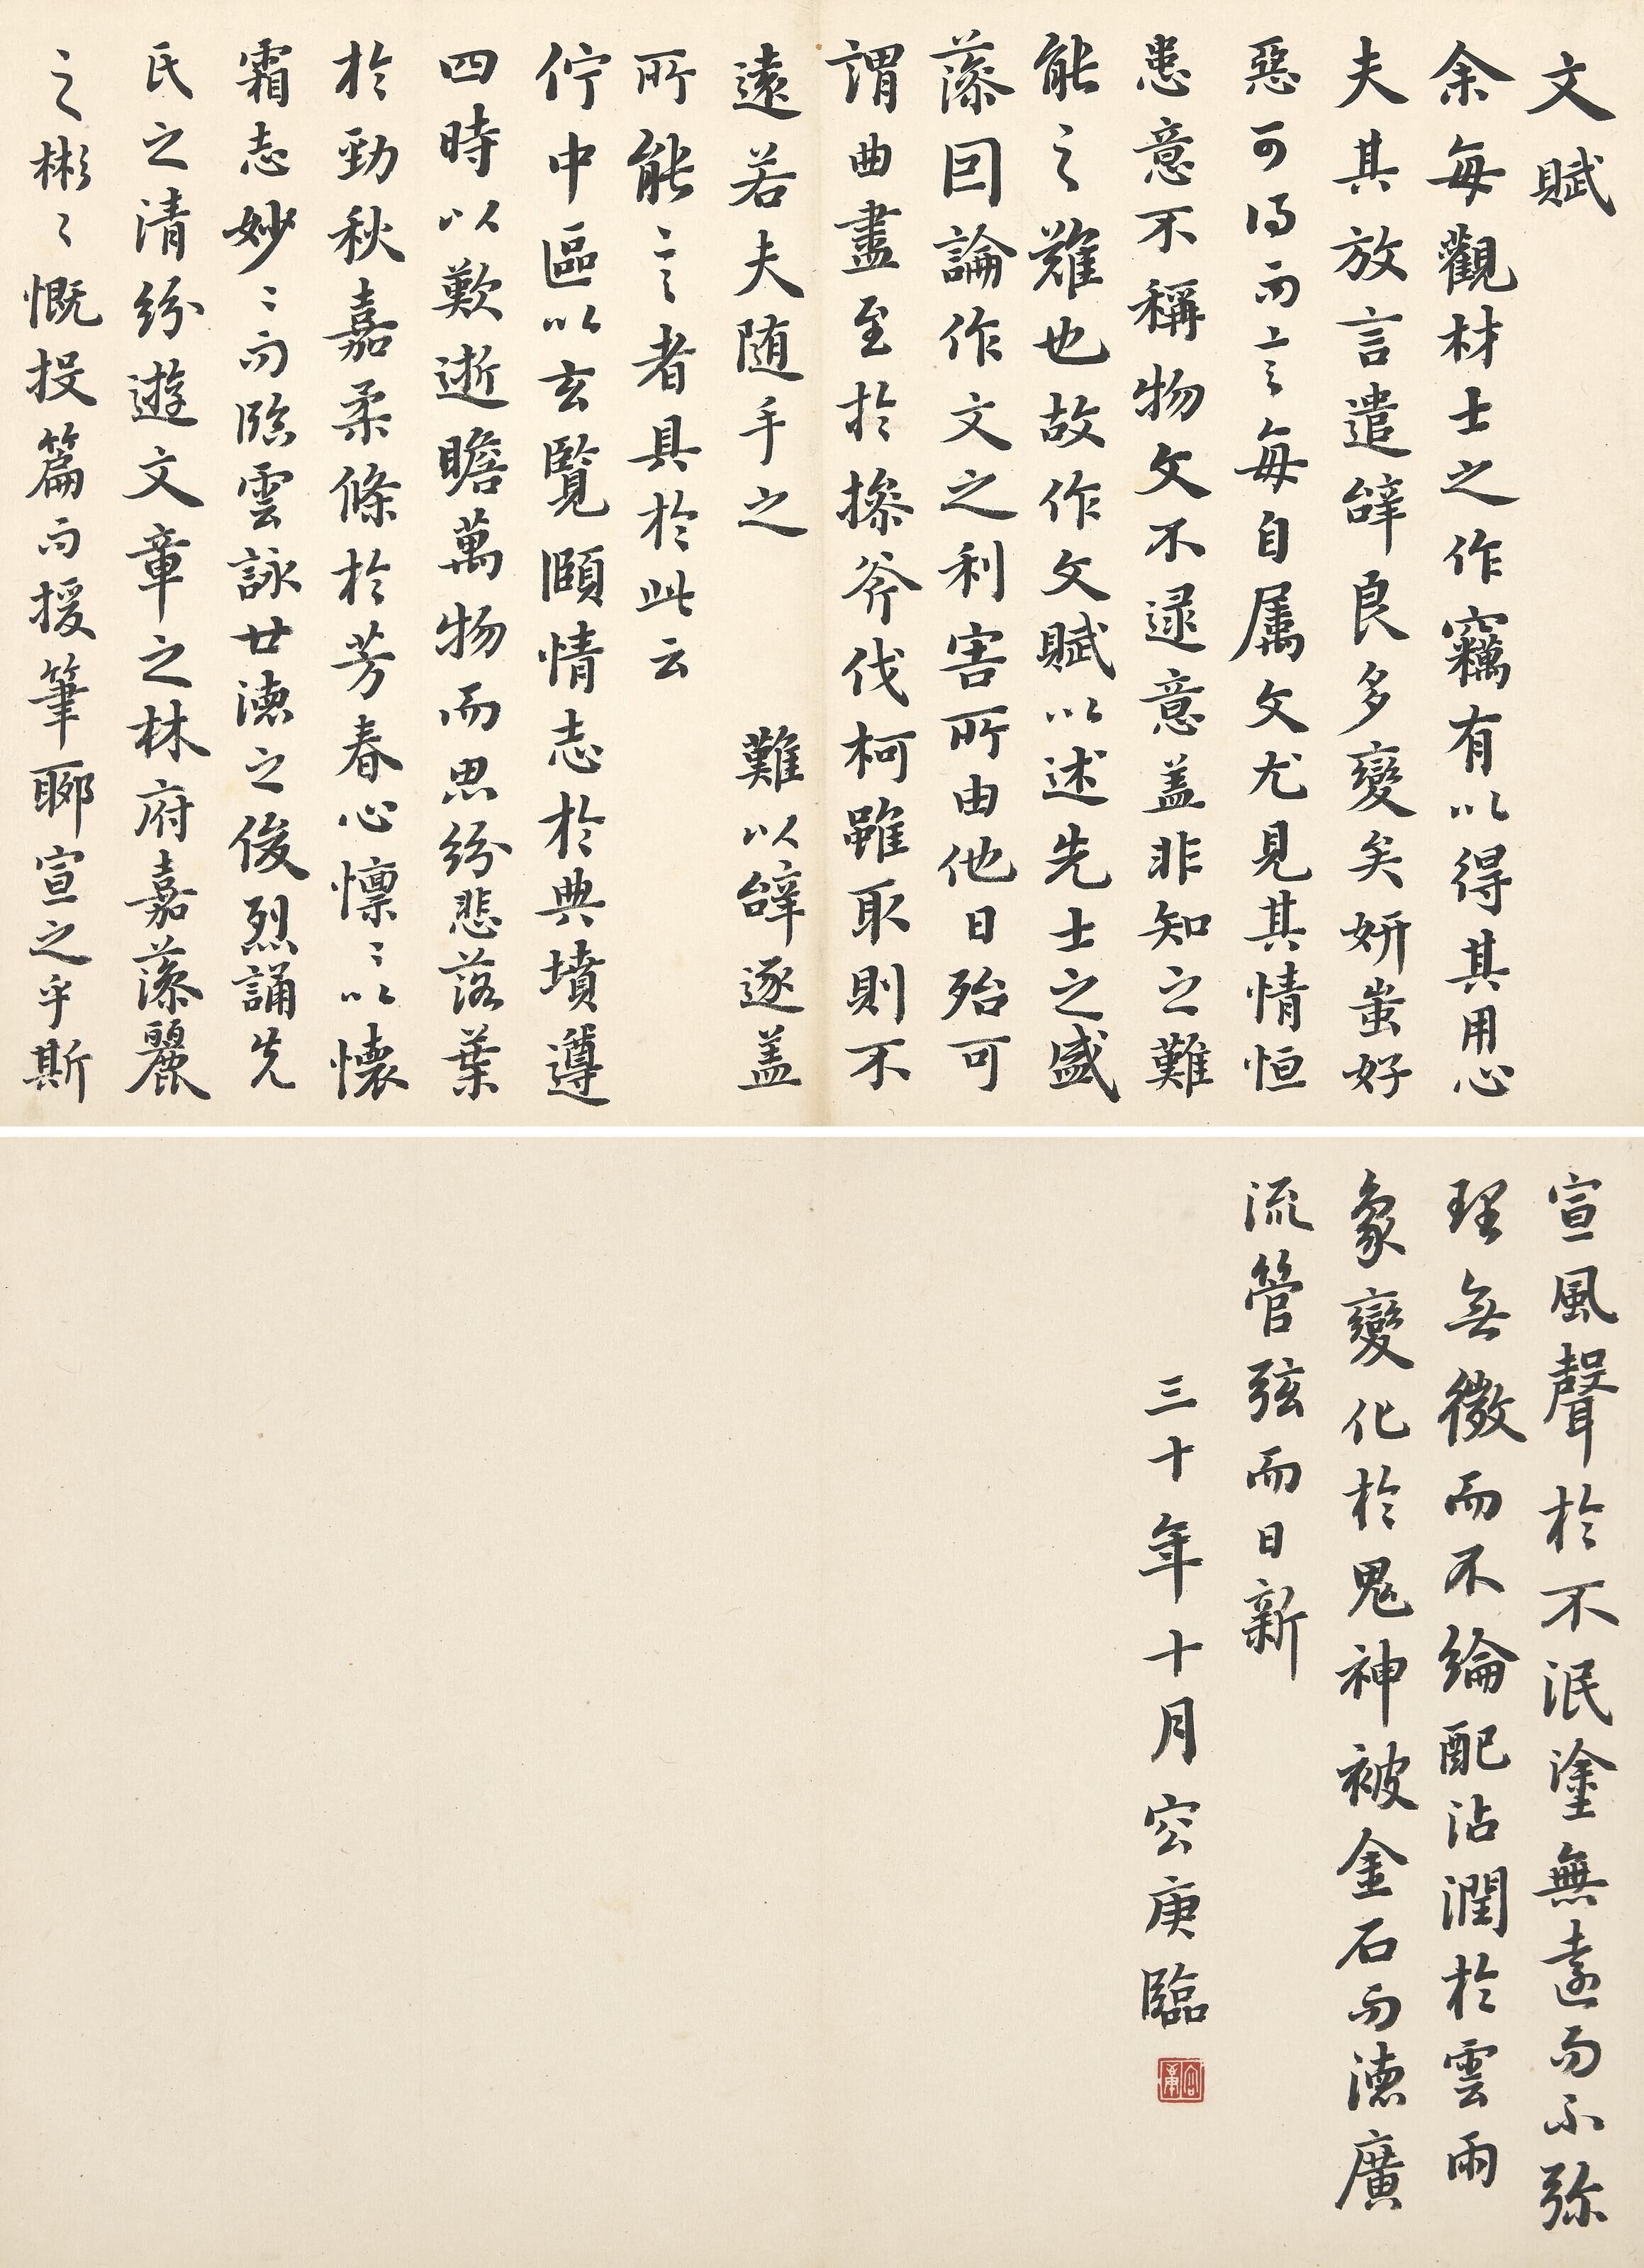 文賦
余每觀材士之作竊有以得其用心
夫其放言遣辭良多變矣妍蚩好
惡可得而言每自属文尤見其情恒
患意不稱物文不逮意盖非知之難
能之難也故作文賦以述先士之盛
藻因論作文之利害所由他日殆可
謂曲盡至於操斧伐柯雖取則不
遠若夫随手之　難以辭逐盖
所能言者具於此云
佇中區以玄覽頤情志於典墳遵
四時以歎逝瞻萬物而思紛悲落葉
於勁秋嘉柔條於芳春心懍々以懷
霜志妙々而臨雲詠世德之俊烈誦先
氏之清紛遊文章之林府嘉藻麗
之彬々慨投篇而援筆聊宣之乎斯
宣風聲於不泯塗無遠而不弥
理無微而不綸配沾潤於雲雨
象變化於鬼神被金石而德廣
流管弦而日新
三十年十月容庚臨
容庚